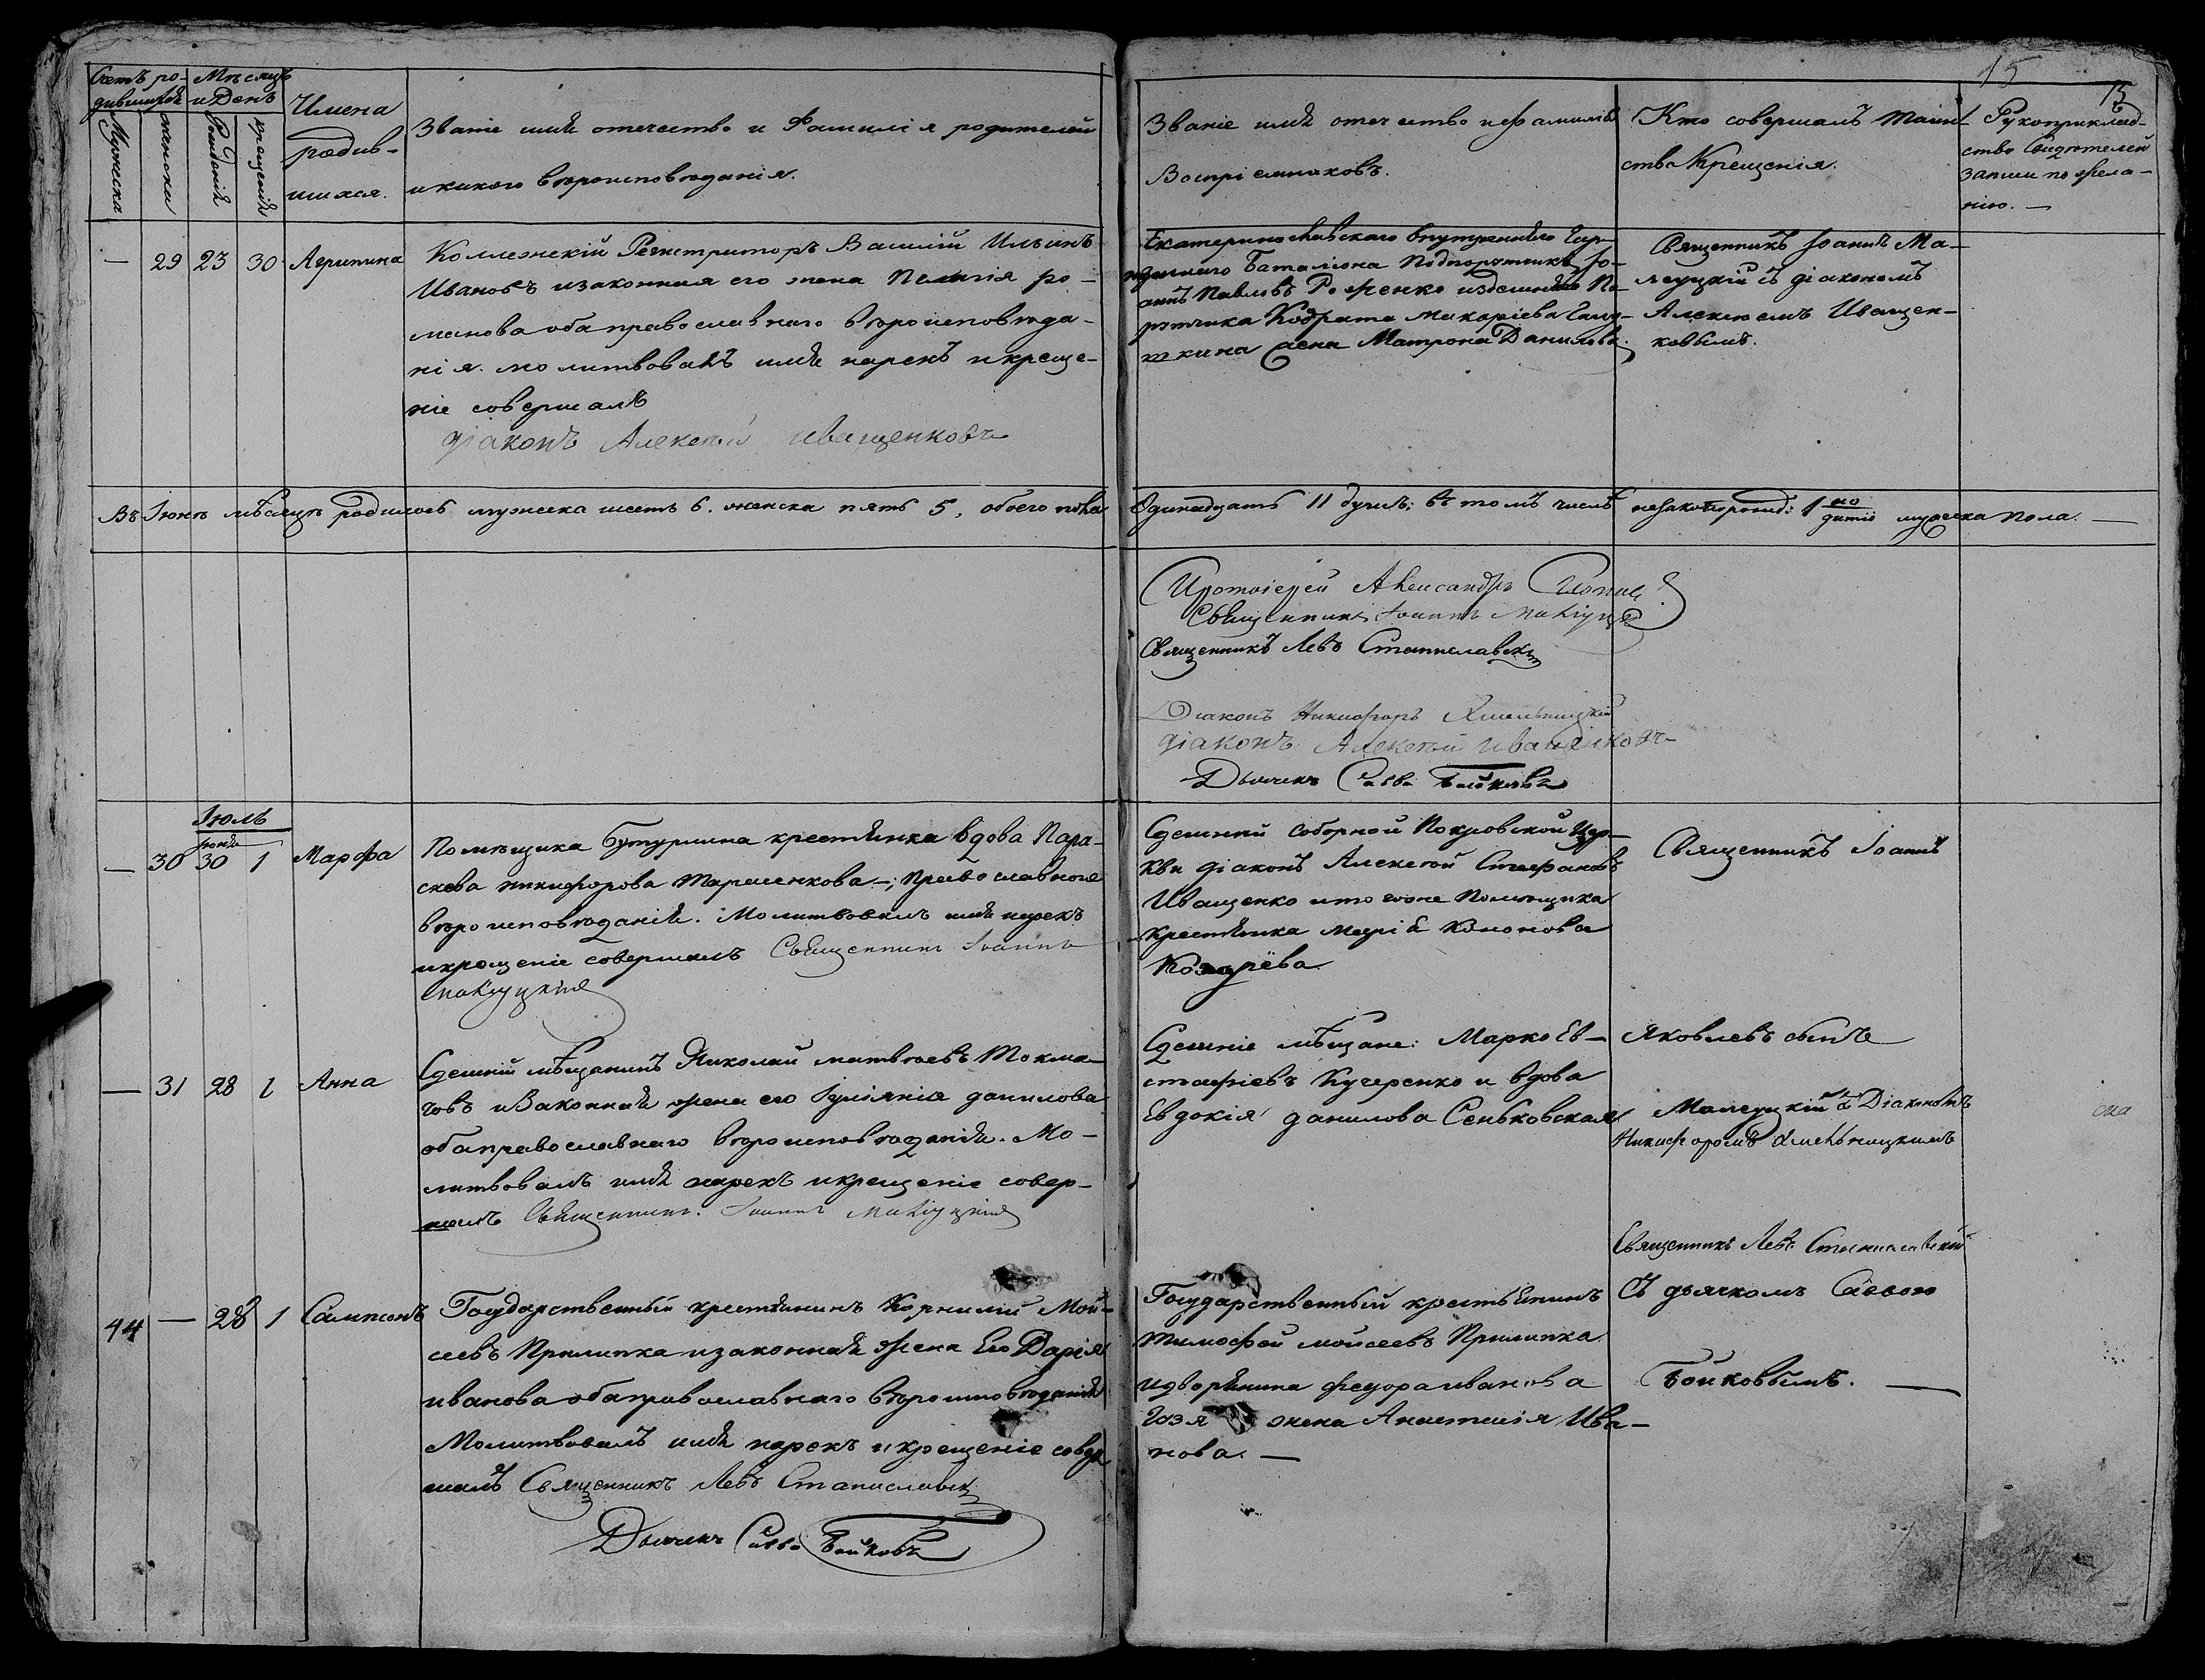 15
15
Счетъ ро-
дившихся
Мѣсяцъ
и День
Мужеска
женска
Рожденія
крещенія
Имена
родив-
шихся.
Званіе имя отечество и Фамилія родителей
и какого вѣроисповѣданія.
Званіе имя отечество и фамилія
Воспріемниковъ.
Кто совершалъ таин-
ство Крещенія.
Рукоприклад-
ство свидѣтелей
записи по жела-
нію. —
— 29 23 30 Агрипина
Коллежскій Регистраторъ Василій Ильинъ
Ивановъ и законная его жена Пелагія ро-
манова оба православнаго вѣроисповѣда-
нія. молитвовалъ имя нарекъ и креще-
ніе совершалъ
діаконъ Алексѣй Иващенковъ
Екатеринославскаго внутренняго Гар-
низоннаго Баталіона Подпорутчикъ Іо-
аннъ Павловъ и здешняго По-
рутчика Кодрата Макаріева
жена Матрона Данилова.
Священникъ Іоаннъ Ма-
леуцкій съ діакономъ
Алексѣемъ Иващен-
ковымъ.
Въ Іюнѣ мѣсяцѣ родилось мужеска шесть 6. женска пять 5, обоего пола
Одинадцать 11 душъ; въ томъ числѣ незаконорожд: 1 но дитя мужеска пола. —
Протоіерей Александръ
Священникъ Іоаннъ Малеуцкій
Священникъ Левъ Станиславскій
Діаконъ Никифоръ Хмельницкій
діаконъ Алексѣй Иващенковъ
Дьячекъ Савва Бойковъ
Іюль
іюня
— 30 30 1 Марфа
Помѣщика Бутурлина крестьянка вдова Пара-
скева никифорова Тарасенкова —; православнаго
вѣроисповѣданія. Молитвовалъ имя нарекъ
и крещеніе совершалъ Священникъ Іоаннъ
Малеуцкій
Сдешней соборной Покровской Цер-
кви діаконъ Алексѣй Стефановъ
Иващенко и того же Помѣщика
крестьянка Марія Кононова
Козырёва
Священникъ Іоаннъ
— 31 28 1 Анна
Сдешній мѣщанинъ Николай матвѣевъ Токма-
ковъ и Законная жена его Іуліянія данилова
оба православнаго вѣроисповѣданія. Мо-
литвовалъ имя нарекъ и крещеніе совер-
шалъ Священникъ Іоаннъ Малеуцкій
Сдешніе мѣщане: Марко Ев-
стафіевъ Кучеренко и вдова
Евдокія данилова Сеньковская
Яковлевъ сынъ
Малеуцкій съ Діакономъ
Никифоромъ Хмельницкимъ
44 — 28 1 Сампсонъ
Государственный крестьянинъ Корнилій Мой-
сеевъ Прилипка и законная жена Его Дарія
иванова оба православнаго вѣроисповѣданія
Молитвовалъ имя нарекъ и крещеніе совер
шалъ Священникъ Левъ Станиславскій
Дьячекъ Савва Бойковъ
Государственный крестьянинъ
тимофей мойсеевъ Прилипка
и дворянина феодора иванова
жена Анастасія Ива-
нова. —
Священникъ Левъ Станиславскій
Съ дьячкомъ Саввою
Бойковымъ. —